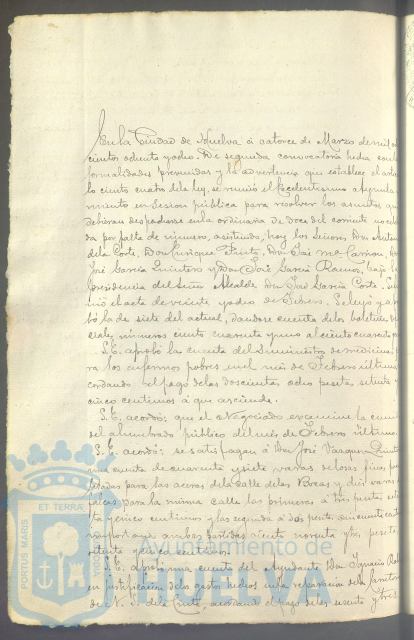 En la Ciudad de Huelva á catorce de Marzo de mil
cientos ochenta y ocho. De segunda convocatoria hecha con
formalidades prevenidas y la advertencia que establece el
lo ciento cuatro de la ley, se reunió el Excelentísimo Ayunta
miento en Sesion pública para resolver los asuntos que
debieran despacharse en la ordinaria de doce del corriente
da por falta de número, asistiendo, hoy los Señores Don
de la Corte, Don Don José Don
José Garcia Quintero y Don José Garcia Ramos, bajo la
presidencia del Señor Alcalde Don José Garcia Corte.
el acta de veinte y ocho de Febrero.
la de siete del actual, dandose cuenta de los boletines
números ciento cuarenta y uno al ciento cuarenta
S. E. aprobó la cuenta del Suministro de medicina
ra los enfermos pobres en el mes de Febrero último
cordando el pago de las doscientas ocho pesetas, setenta y
cinco centimos á que asciende.
S. E. acordó: que el Negociado examine la cuenta
del alumbrado público del mes de Febrero último.
S. E. acordó: se satisfagan á Don José Vazquez
una cuenta de cuarenta y siete varas de losas finas,
para las aceras de la Calle de las Bocas y diez varas
para la misma calle las primeras á tres pesetas
ta y cinco centimos y las segundas á dos pesetas cincuenta
ambas partidas ciento noventa y tres pesetas
y cinco centimos.
S. E. aprobó una cuenta del Ayudante Don Ignacio
en justificacion de los gastos hechos en la reparacion
de acordando el pago de las sesenta y tres
PORTUS MARIS ET TERRÆ CUSTODIA
Ayuntamiento de
HUELVA